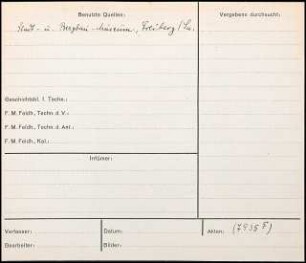 Benutzte Quellen:
Vergebens durchsucht:
Stadt- u. Bergbau-Museum, Freiberg / Sa.
Geschichtsbl. f. Techn.:
F. M. Feldh., Techn. d. V.:
F. M. Feldh., Techn. d. Ant.:
F. M. Feldh., Kal.:
Irrtümer:
Verfasser:
Datum:
Akten: (7935 F)
Bearbeiter:
Bilder: